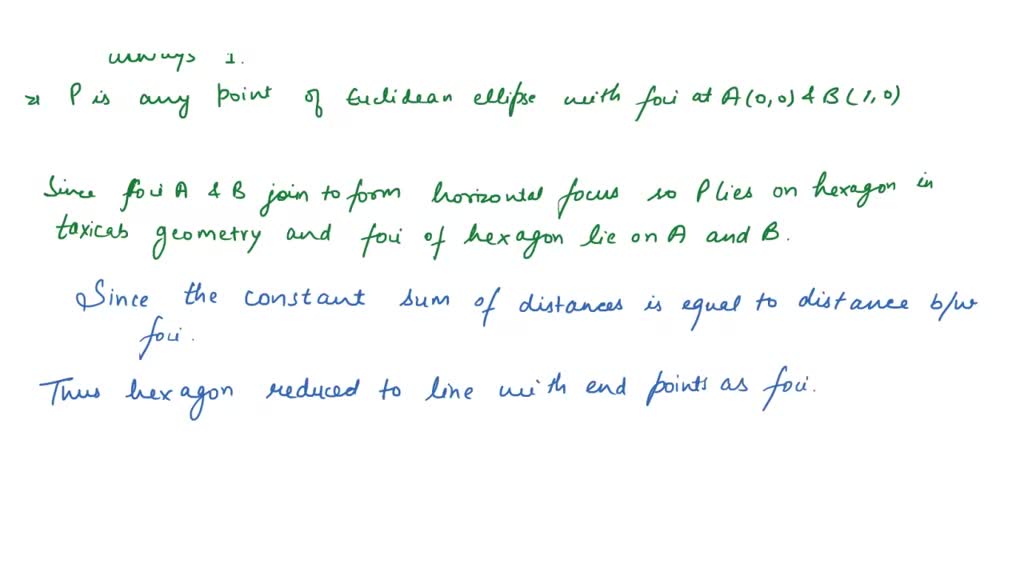 always 1.
⇒ P is any point of Euclidean ellipse with foci at A(0,0) & B(1,0)
Since foci A & B join to form horizontal focus so P lies on hexagon in
taxicab geometry and foci of hexagon lie on A and B.
Since the constant sum of distances is equal to distance b/w
foci.
Thus hexagon reduced to line with end points as foci.